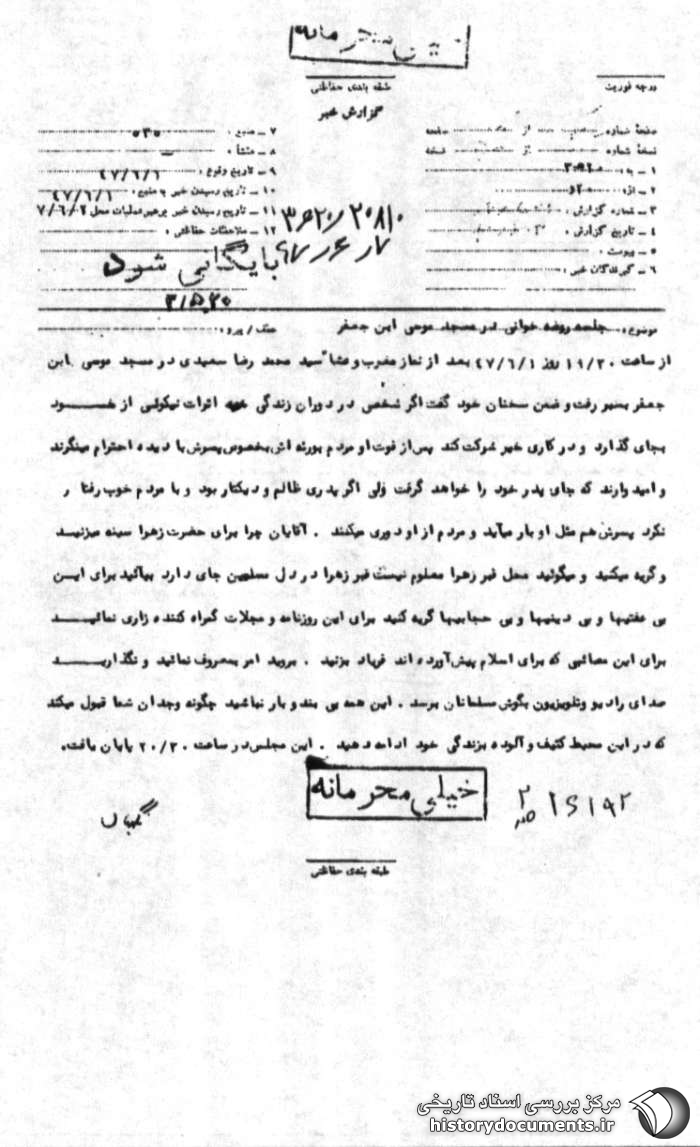 خیلی محرمانه
درجه فوریت
طبقه بندی حفاظتی
گزارش خبر
صفحه شماره از صفحه
نسخه شماره از نسخه
۱ ـ به:
۲ ـ از:
۳ ـ شماره گزارش:
۴ ـ تاریخ گزارش:
۵ ـ پیوست:
۶ ـ گیرندگان خبر:
۷ ـ منبع:
۸ ـ منشأ: ـ
۹ ـ تاریخ وقوع: ۴۷/۶/۱
۱۰ ـ تاریخ رسیدن خبر به منبع: ۴۷/۶/۱
۱۱ ـ تاریخ رسیدن خبر برهبر عملیات محل
۱۲ ـ ملاحظات حفاظتی:
بایگانی شود
موضوع: جلسه روضه خوانی در مسجد موسی ابن جعفر عطف / پیرو:
از ساعت ۱۹/۳۰ روز ۴۷/۶/۱ بعد از نماز مغرب و عشاء سید محمد رضا سعیدی در مسجد موسی ابن
جعفر بمنبر رفت و ضمن سخنان خود گفت اگر شخصی در دوران زندگی اثرات نیکوئی از خود
بجای گذارد و در کاری خیر شرکت کند پس از فوت او مردم بورثه اش بخصوص پسرش با دیده احترام مینگرند
و امیدوارند که جای پدر خود را خواهد گرفت ولی اگر پدری ظالم و دیکتاتر بود و با مردم خوب رفتار
نکرد پسرش هم مثل او بار میآید و مردم از او دوری میکنند . آقایان چرا برای حضرت زهرا سینه میزنید
و گریه میکنید و میگوئید محل قبر زهرا معلوم نیست قبر زهرا در دل مسلمین جای دارد بیائید برای این
بی عفتیها و بی دینیها و بی حجابیها گریه کنید برای این روزنامه و مجلات گمراه کننده زاری نمائید
برای این مصائبی که برای اسلام پیش آورده اند فریاد بزنید . بروید امر بمعروف نمائید و نگذارید
صدای رادیو و تلویزیون بگوش مسلمانان برسد . این همه بی بند و بار نباشید چگونه وجدان شما قبول میکند
که در این محیط کثیف و آلوده بزندگی خود ادامه دهید . این مجلس در ساعت ۲۰/۳۰ پایان یافت.
خیلی محرمانه
طبقه بندی حفاظتی
مرکز بررسی اسناد تاریخی
historydocuments.ir